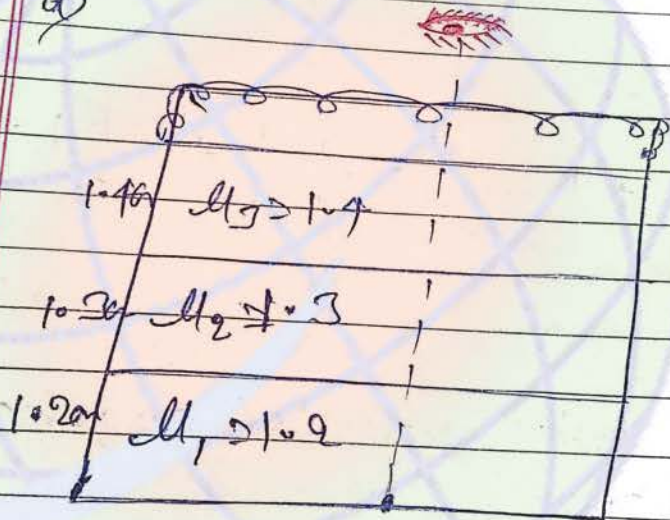 1.4m μ3 = 1.4
1.3m μ2 = 1.3
1.2m μ1 = 1.2